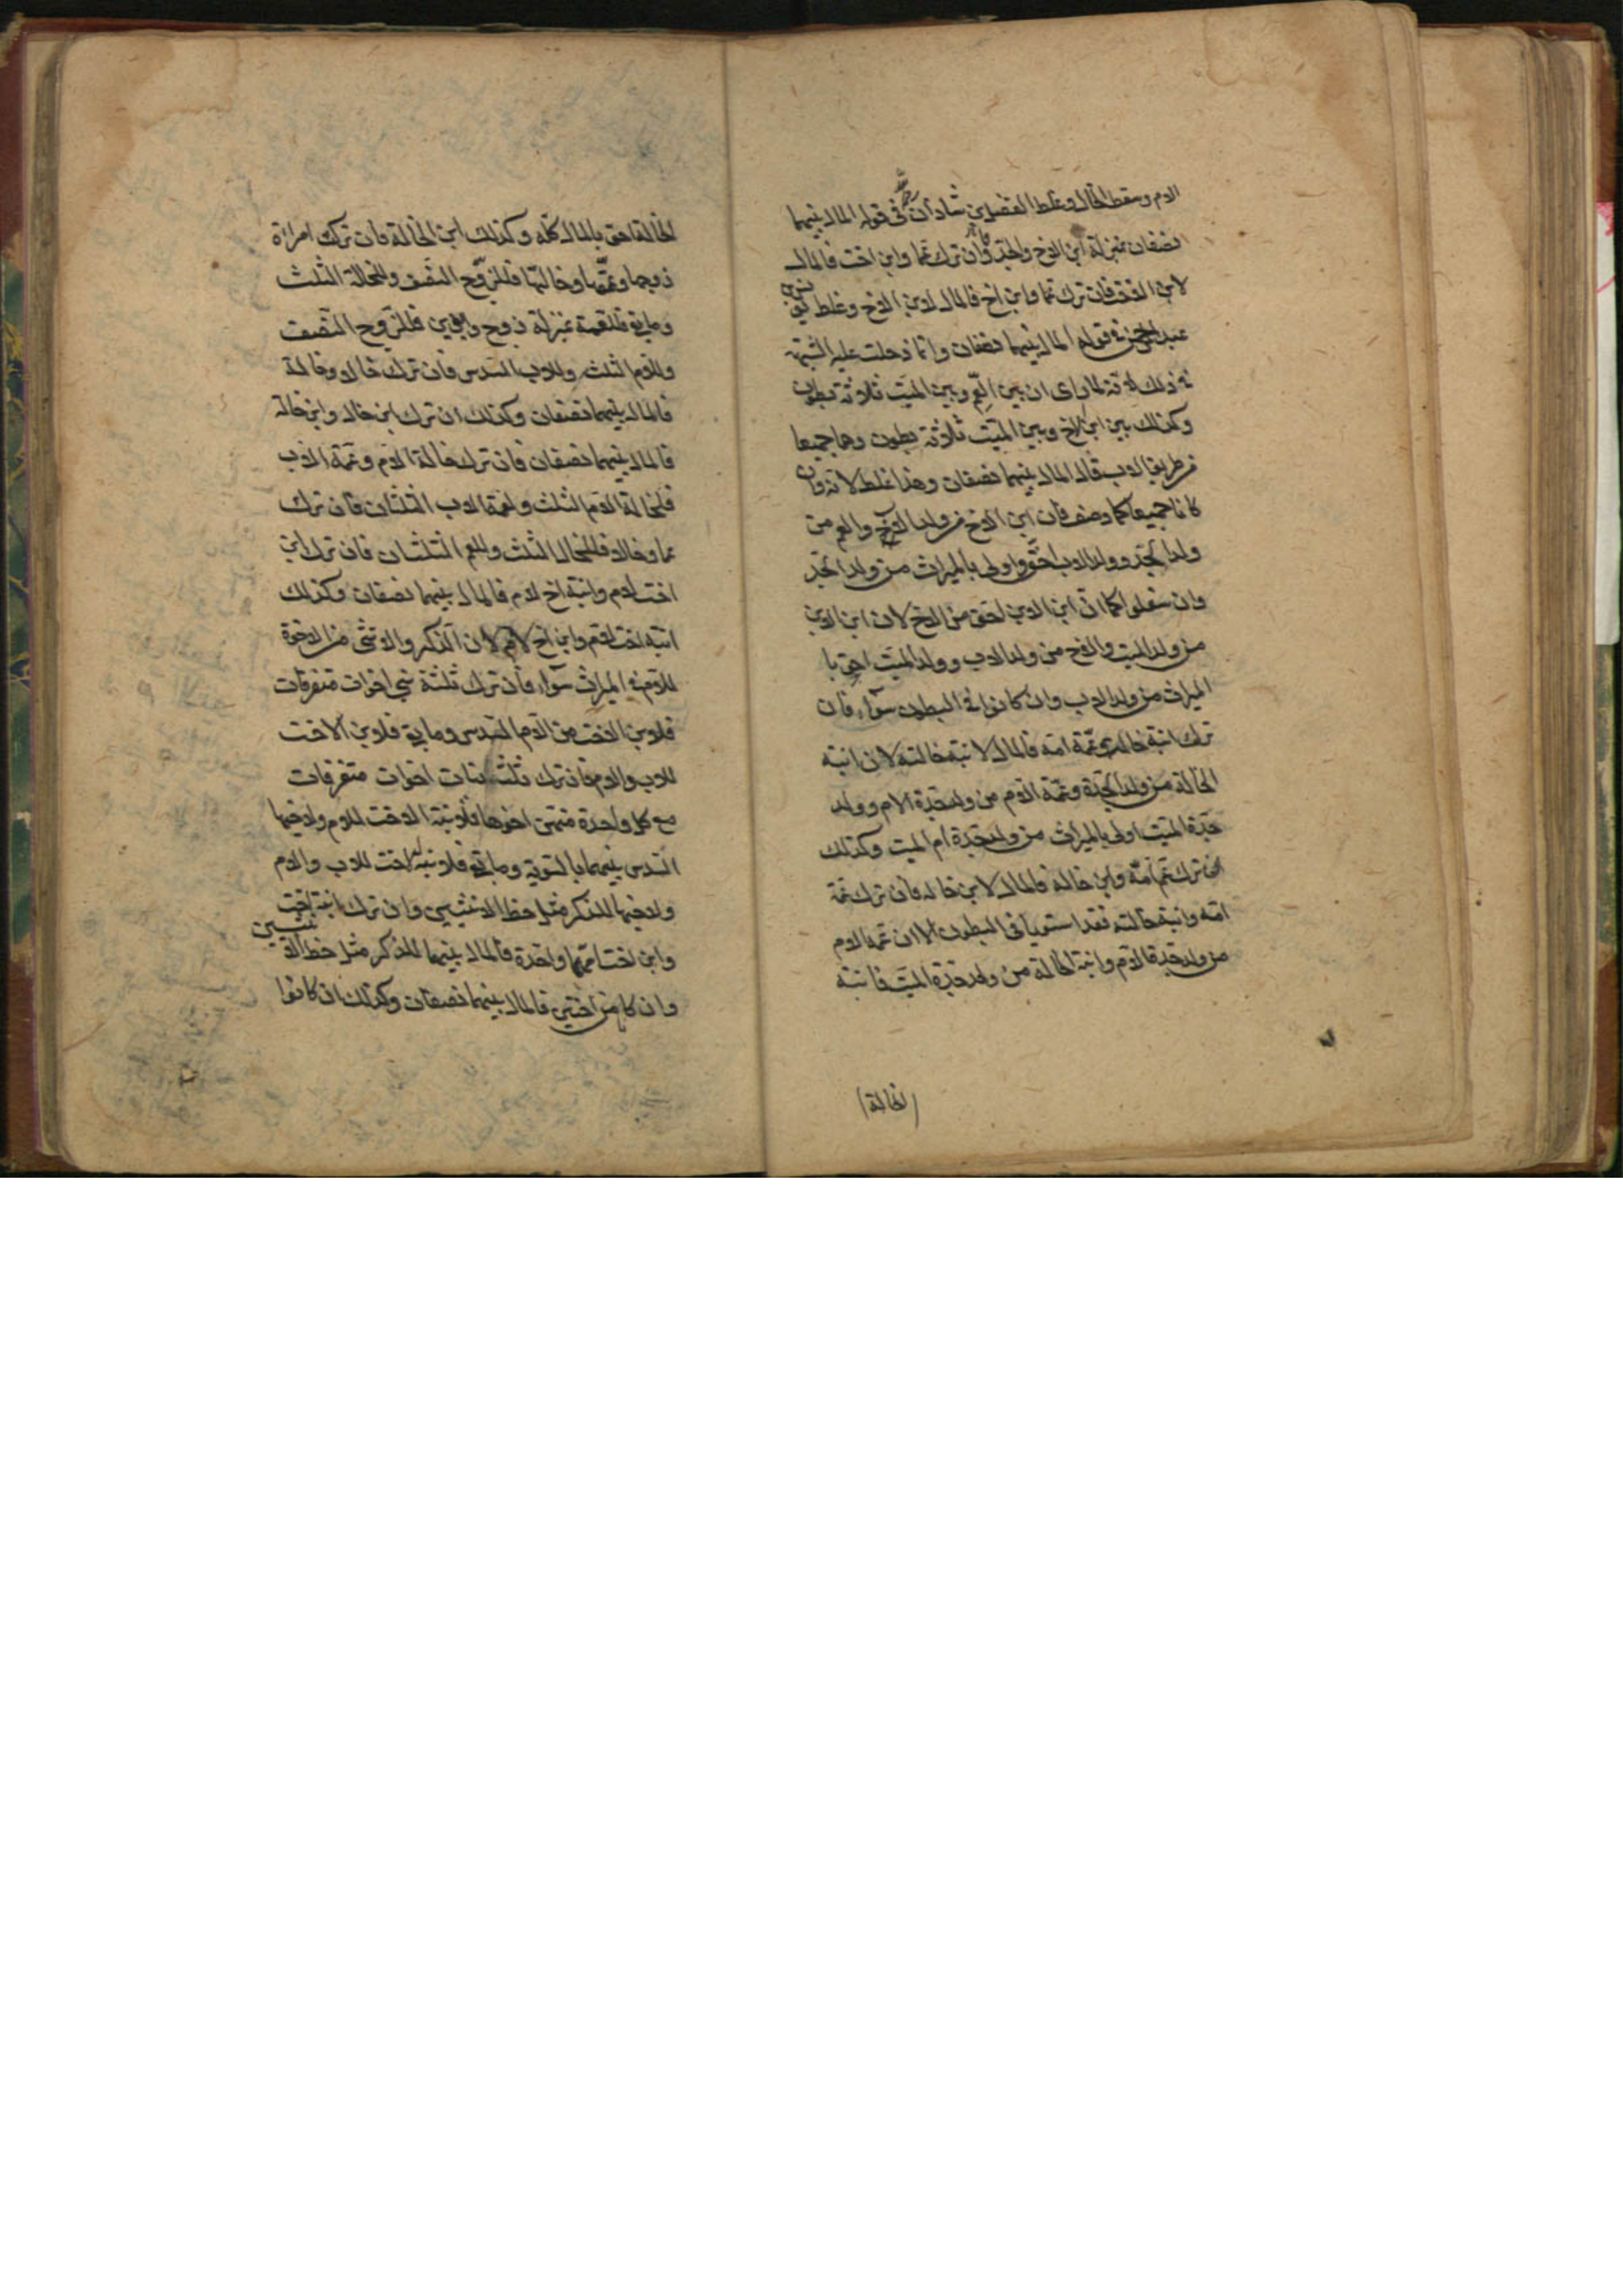 الام وسقط الخال وغلط الفضل بن شاذان رحمه الله فى قوله المال بينهما
نصفان بمنزلة ابن الاخ والجد فان ترك عما وابن اخت فالمال
لابن الاخت فان ترك عما وابن اخ فالمال لابن الاخ وغلط يونس بن
عبدالرحمن فى قوله المال بينهما نصفان وانما دخلت عليه الشبهة
فى ذلك لانه لما راى ان بين العم وبين الميت ثلاثة بطون
وكذلك بين ابن الاخ وبين الميت ثلاثة بطون وهما جميعا
من طريق الاب قال المال بينهما نصفان وهذا غلط لانه وان
كانا جميعا كما وصف فان ابن الاخ من ولد الاب والعم من
ولد الجد وولد الاب احق واولى بالميراث من ولد الجد
وان سفلوا كما ان ابن الابن احق من الاخ لان ابن الابن
من ولد الميت والاخ من ولد الاب وولد الميت احق با
الميراث من ولد الاب وان كانوا فى البطون سواء فان
ترك ابنة خاله وعمة امه فالمال لابنة خالته لان ابنة
الخالة من ولد الجدة وعمة الام من ولد جدة الام وولد
جدة الميت اولى بالميراث من ولد جدة ام الميت وكذلك
ان ترك عم امه وابن خاله فالمال لابن خاله فان ترك عمة
امه وابنة خالته فقد استويا فى البطون الا ان عمة الام
من ولد جدة الام وابنة الخالة من ولد جدة الميت فابنة
(الخالة)
الخالة احق بالمال كله وكذلك ابن الخالة فان ترك امراة
زوجها وعمتها وخالتها فللزوج النصف وللخالة الثلث
وما بقى فللعمة بمنزلة زوج وابوين فللزوج النصف
وللام الثلث وللاب السدس فان ترك خالا وخالة
فالمال بينهما نصفان وكذلك ان ترك ابن خال وابن خالة
فالمال بينهما نصفان فان ترك خالة الام وعمة الاب
فلخالة الام الثلث ولعمة الاب الثلثان فان ترك
عما وخالا فللخال الثلث وللعم الثلثان فان ترك ابن
اخت لام وابنة اخ لام فالمال بينهما نصفان وكذلك
ابنة اخت لام وابن اخ لام لان الذكر والانثى من الاخوة
للام فى الميراث سواء فان ترك ثلثة بنى اخوات متفرقات
فلابن الاخت من الام السدس وما بقى فلابن الاخت
للاب والام فان ترك ثلث بنات اخوات متفرقات
مع كل واحدة منهن اخوها فلابنة الاخت للام ولاخيها
السدس بينهما بالسوية وما بقى فلابنة الاخت للاب والام
ولاخيها للذكر مثل حظ الانثيين وان ترك ابنة اخت
وابن اخت امهما واحدة فالمال بينهما للذكر مثل حظ الانثيين
وان كانا من اختين فالمال بينهما نصفان وكذلك ان كانوا